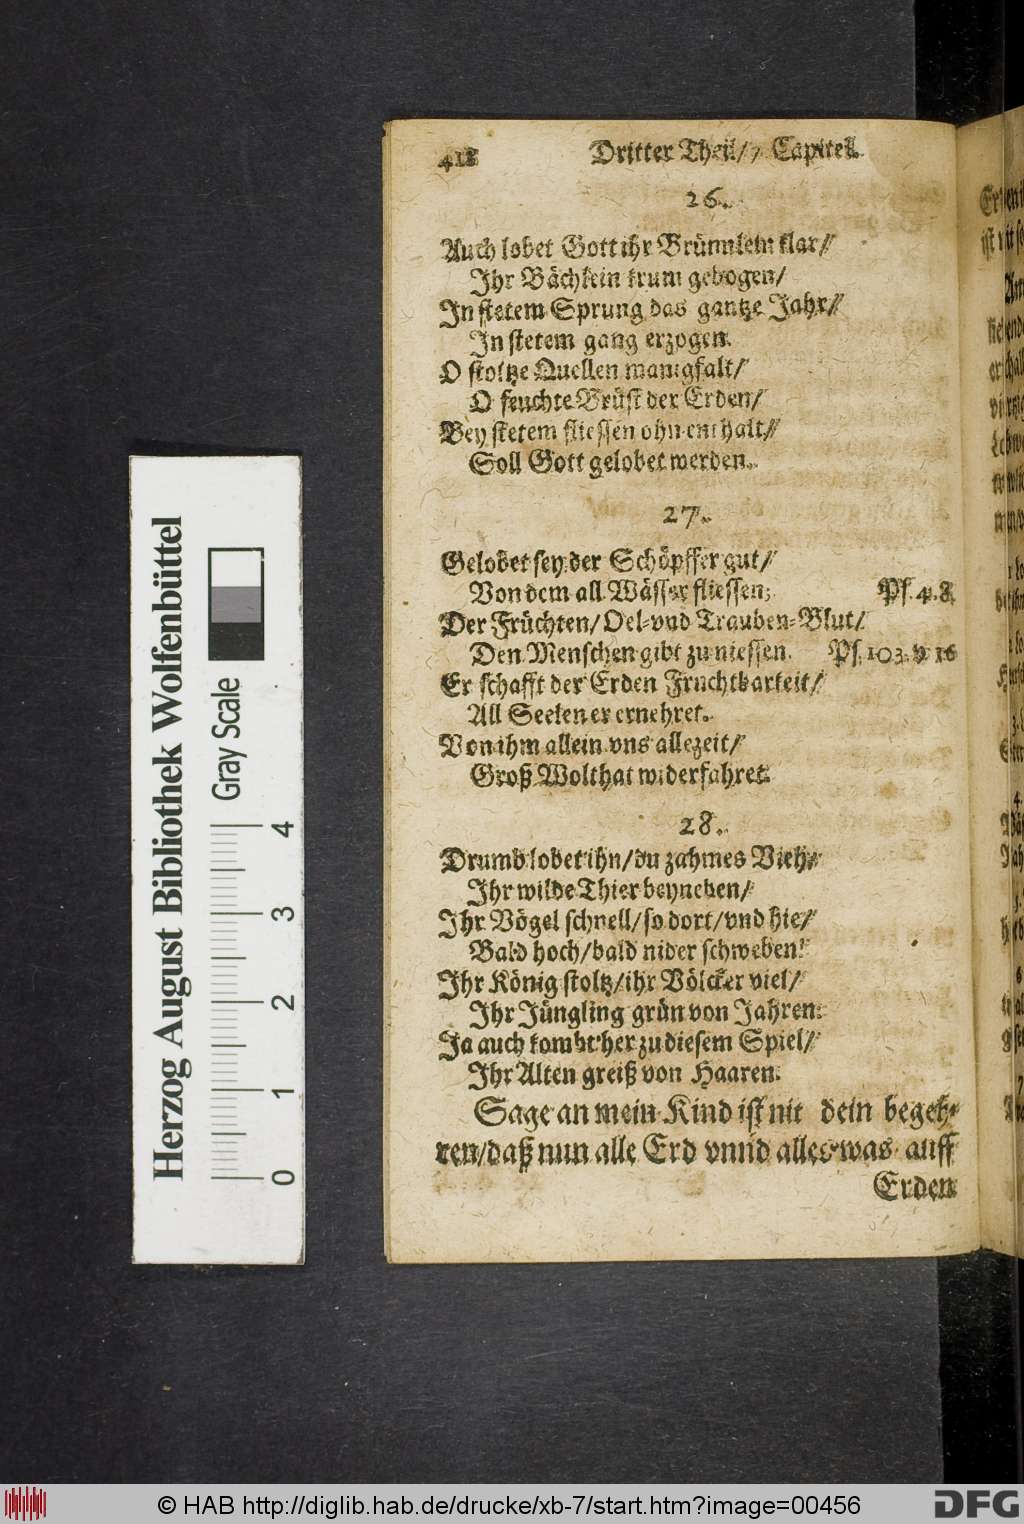 412 Dritter Theil/ 7 Capitel.
26.
Auch lobet Gott ihr Brünnlein klar/
Ihr Bächlein krum gebogen/
In stetem Sprung das gantze Jahr/
In stetem gang erzogen.
O stoltze Quellen manigfalt/
O feuchte Brüst der Erden/
Bey stetem fliessen ohn enthalt/
Soll Gott gelobet werden.
27.
Gelobet sey der Schöpffer gut/
Von dem all Wässer fliessen; Ps. 4. 8.
Der Früchten/ Oel- vnd Trauben-Blut/
Den Menschen gibt zu niessen. Ps. 103. v 16
Er schafft der Erden Fruchtbarkeit/
All Seelen er ernehret.
Von ihm allein vns allezeit/
Groß Wolthat widerfahret.
28.
Drumb lobet ihn/ du zahmes Vieh/
Ihr wilde Thier beyneben/
Ihr Vögel schnell/ so dort/ vnd hie/
Bald hoch/ bald nider schweben.
Ihr König stoltz/ ihr Völcker viel/
Ihr Jüngling grün von Jahren:
Ja auch kombt her zu diesem Spiel/
Ihr Alten greiß von Haaren.
Sage an mein Kind ist nit dein begeh-
ren/ daß nun alle Erd vnnd alles was auff
Erden
Herzog August Bibliothek Wolfenbüttel
Gray Scale
0 1 2 3 4
© HAB http://diglib.hab.de/drucke/xb-7/start.htm?image=00456
DFG